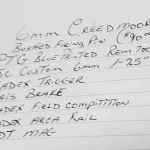 6mm CREEDMOOR
BUSHED FIRING PIN ($90
PTG BLUEPRINTED REM 700
CUSTOM 6mm 1-25"
TRIGGER
BRAKE
FIELD COMPETITION
ARCA RAIL
MAG